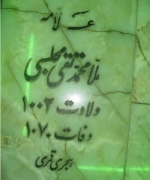 علامه
ملا محمد تقی مجلسی
ولادت ۱۰۰۳
وفات ۱۰۷۰
هجری قمری